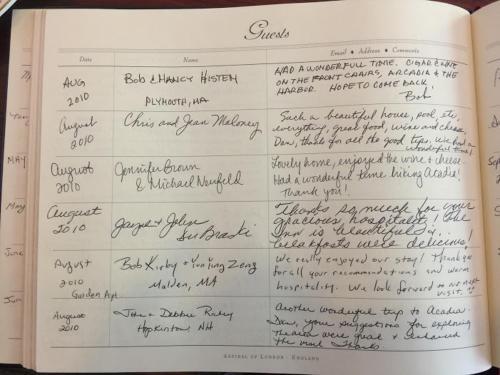 Guests
Date Name Email ♦ Address ♦ Comments
AUG
2010
BOB & NANCY HISTEN
PLYMOUTH, MA
HAD A WONDERFUL TIME. CIGAR & WINE
ON THE FRONT CHAIRS, ARCADIA & THE
HARBOR. HOPE TO COME BACK!
Bob
August
2010
Chris and Jean Maloney
Such a beautiful house, pool, etc,
everything, great food, wine and cheese,
Dan, thanks for all the good tips, we had a
wonderful time!
August
2010
Jennifer Brown
& Michael Neufeld
Lovely home, enjoyed the wine & cheese.
Had a wonderful time hiking Acadia!
Thank you!
August
2010
Jayne & John
Thanks so much for your
gracious hospitality! The
Inn is beautiful &
breakfasts were delicious!
August
2010
Garden Apt
Bob Kirby & Yunjung Zeng
Malden, MA
We really enjoyed our stay! Thank you
for all your recommendations and warm
hospitality. We look forward to our next
visit.
August
2010
John & Debbie Raley
Hopkinton, NH
Another wonderful trip to Acadia.
Dan, your suggestions for exploring
the area were great & enhanced
the visit. Thanks.
ASPINAL OF LONDON · ENGLAND
May
June
Jun